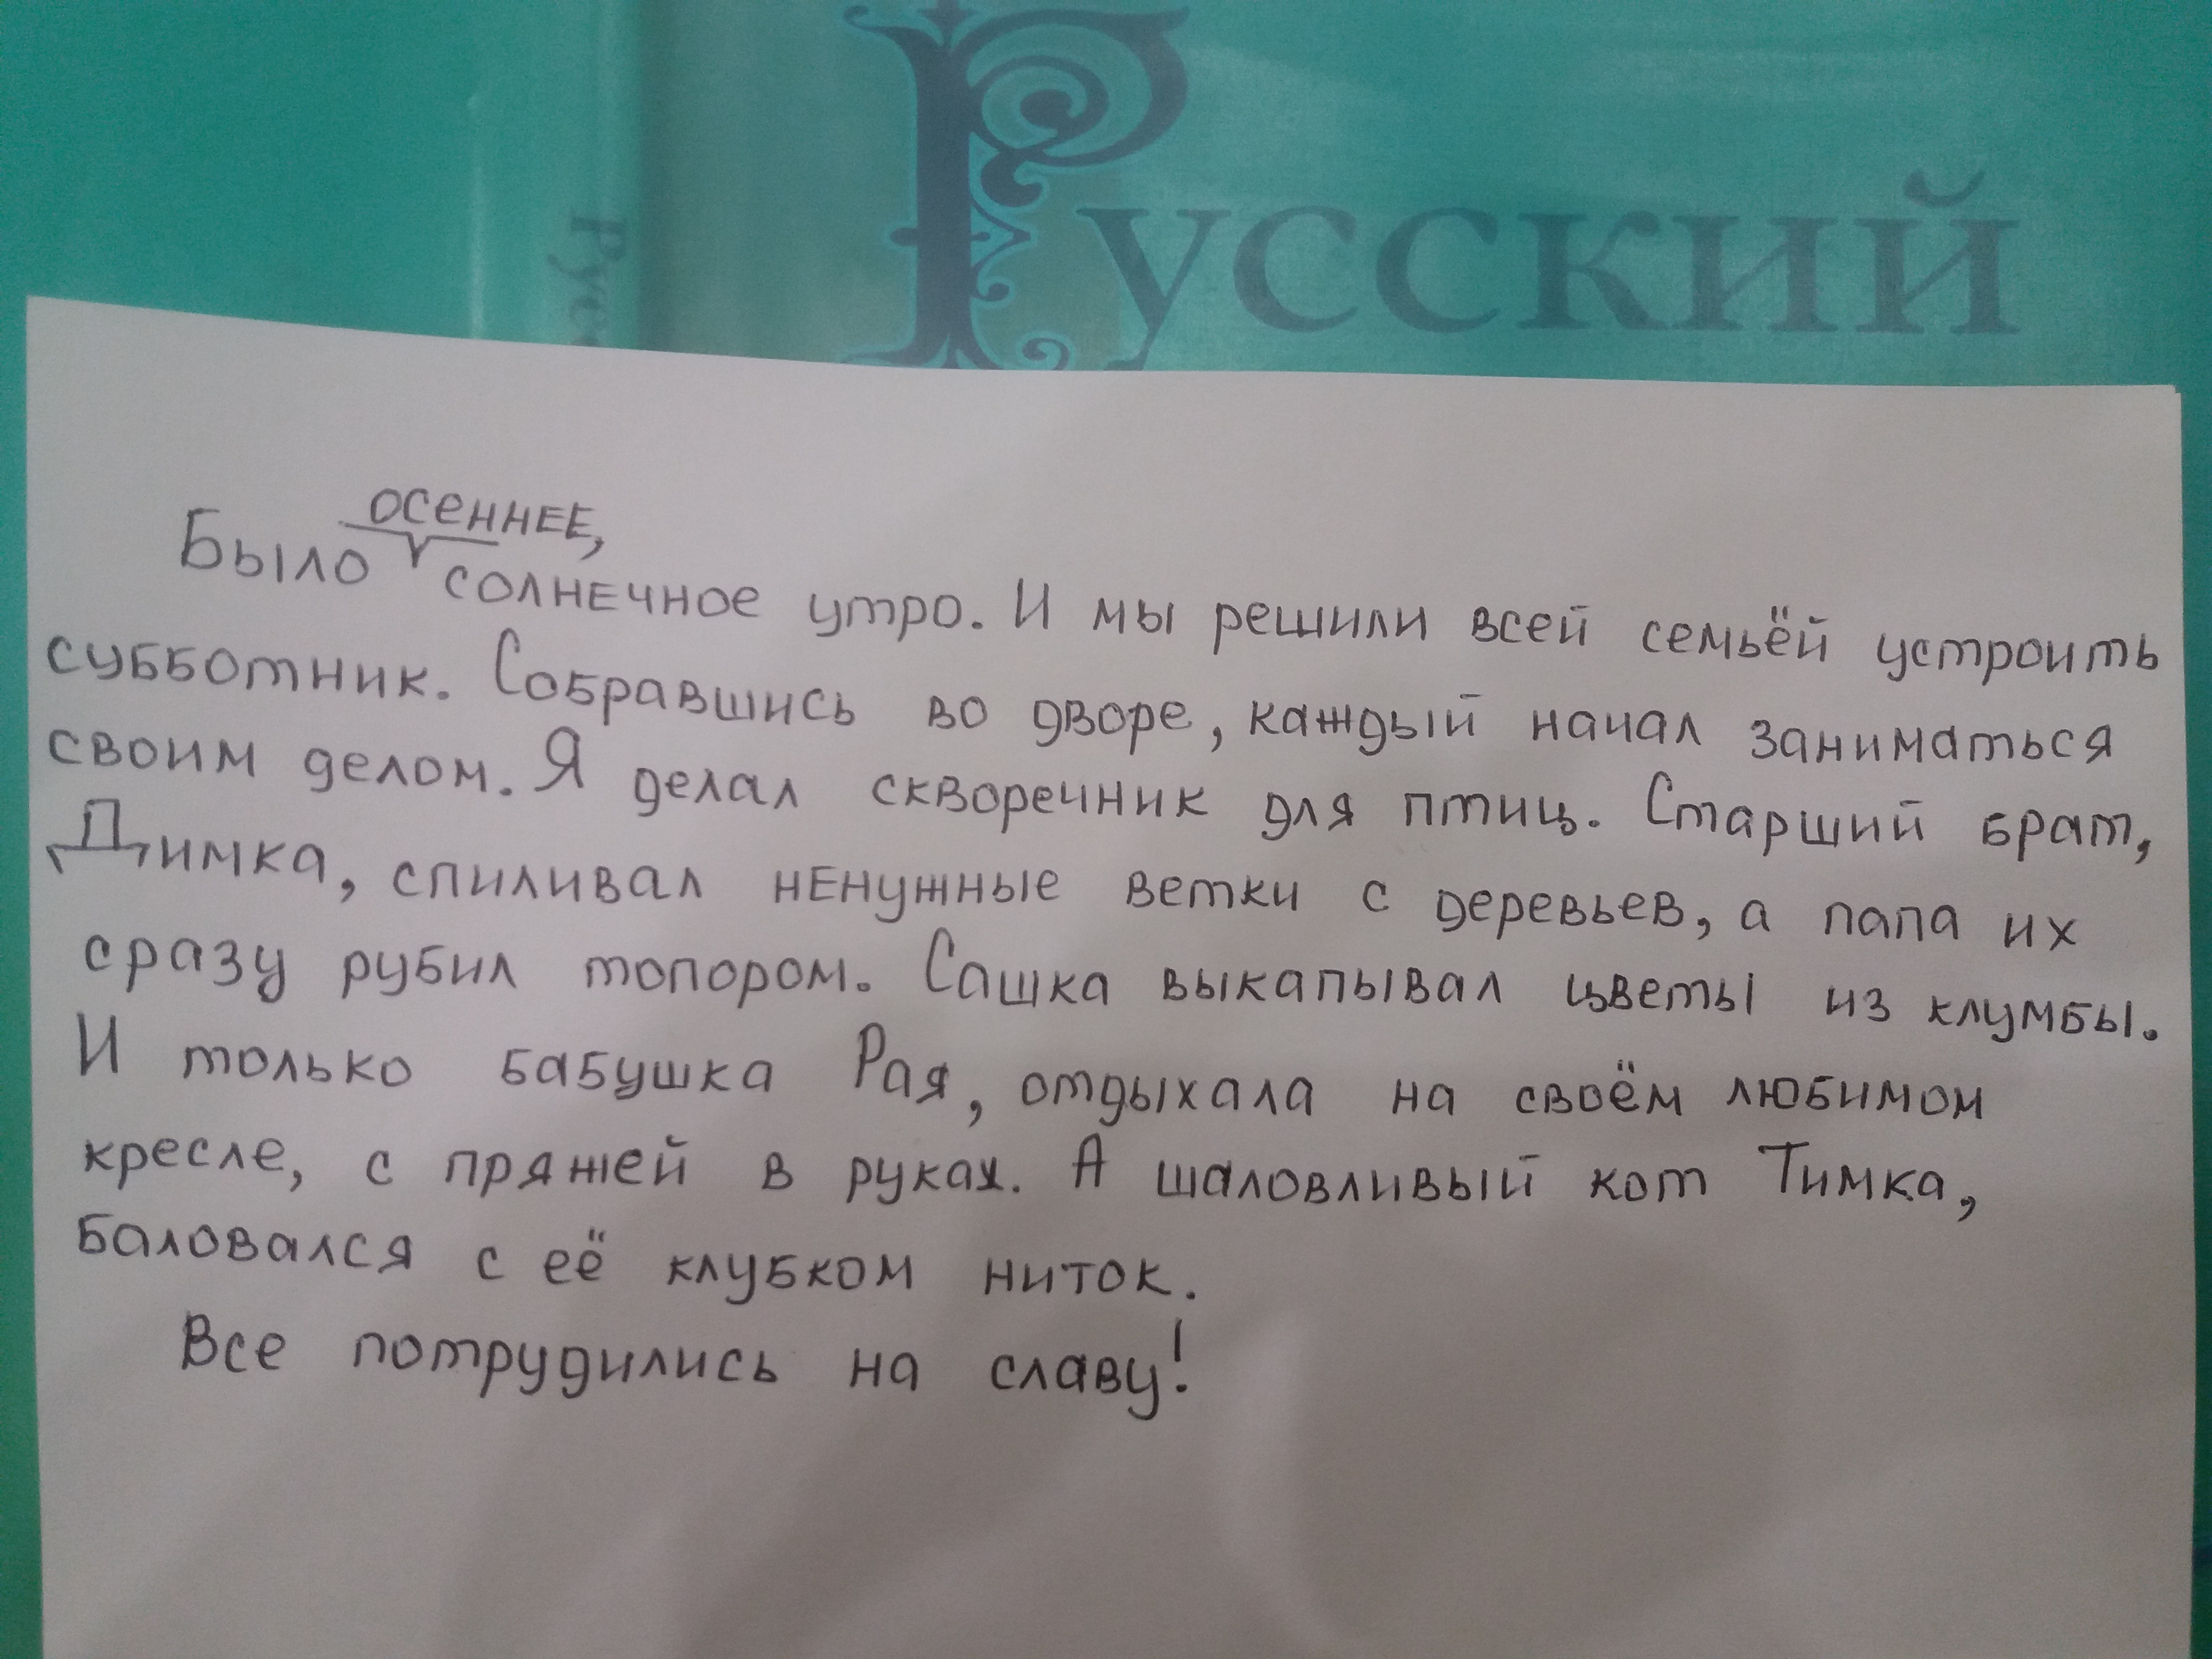 Русский
Русс
осеннее,
Было солнечное утро. И мы решили всей семьёй устроить
субботник. Собравшись во дворе, каждый начал заниматься
своим делом. Я делал скворечник для птиц. Старший брат,
Димка, спиливал ненужные ветки с деревьев, а папа их
сразу рубил топором. Сашка выкапывал цветы из клумбы.
И только бабушка Рая, отдыхала на своём любимом
кресле, с пряжей в руках. А шаловливый кот Тимка,
баловался с её клубком ниток.
Все потрудились на славу!